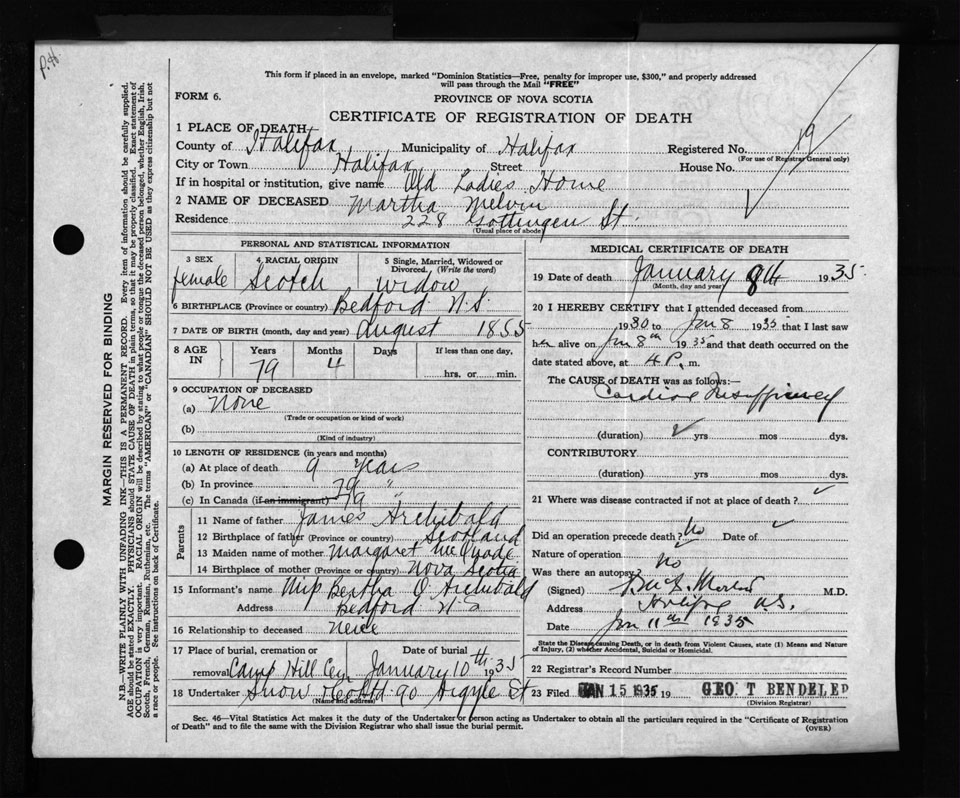 P.H.
This form if placed in an envelope, marked "Dominion Statistics—Free, penalty for improper use, $300," and properly addressed
will pass through the Mail "FREE"
FORM 6.
PROVINCE OF NOVA SCOTIA
CERTIFICATE OF REGISTRATION OF DEATH
1 PLACE OF DEATH
County of Halifax Municipality of Halifax Registered No. 19
(For use of Registrar General only)
City or Town Halifax Street House No.
If in hospital or institution, give name Old Ladies Home
2 NAME OF DECEASED Martha Melvin
Residence 228 Gottingen St.
(Usual place of abode)
PERSONAL AND STATISTICAL INFORMATION
3 SEX 4 RACIAL ORIGIN 5 Single, Married, Widowed or Divorced. (Write the word)
female Scotch widow
6 BIRTHPLACE (Province or country) Bedford N.S.
7 DATE OF BIRTH (month, day and year) August 1855
8 AGE IN Years Months Days If less than one day,
79 4 hrs. or min.
9 OCCUPATION OF DECEASED
(a) None
(Trade or occupation or kind of work)
(b)
(Kind of industry)
10 LENGTH OF RESIDENCE (in years and months)
(a) At place of death 9 years
(b) In province 79 "
(c) In Canada (if an immigrant) 79 "
Parents
11 Name of father James Archibald
12 Birthplace of father (Province or country) Scotland
13 Maiden name of mother Margaret McQuade
14 Birthplace of mother (Province or country) Nova Scotia
15 Informant's name Miss Bertha O. Archibald
Address Bedford N S
16 Relationship to deceased neice
17 Place of burial, cremation or Date of burial
removal Camp Hill Cem January 10th 1935
18 Undertaker Snow & Co Ltd 90 Argyle St
(Name and address)
MEDICAL CERTIFICATE OF DEATH
19 Date of death January 8th 1935
(Month, day and year)
20 I HEREBY CERTIFY that I attended deceased from
1930 to Jan 8 1935 that I last saw
her alive on Jan 8th 1935 and that death occurred on the
date stated above, at 4 P. m.
The CAUSE OF DEATH was as follows:—
Cardiac Insufficiency
(duration) 2 yrs mos dys.
CONTRIBUTORY
(duration) yrs mos dys.
21 Where was disease contracted if not at place of death?
Did an operation precede death? No Date of
Nature of operation
Was there an autopsy? No
(Signed) M.D.
Address Halifax N.S.
Date Jan 11th 1935
State the Disease causing Death, or in death from Violent Causes, state (1) Means and Nature
of Injury, (2) whether Accidental, Suicidal or Homicidal.
22 Registrar's Record Number
23 Filed JAN 15 1935 19 GEO. T BENDELEP
(Division Registrar)
Sec. 46—Vital Statistics Act makes it the duty of the Undertaker or person acting as Undertaker to obtain all the particulars required in the "Certificate of Registration
of Death" and to file the same with the Division Registrar who shall issue the burial permit.
(OVER)
MARGIN RESERVED FOR BINDING
N.B.—WRITE PLAINLY WITH UNFADING INK—THIS IS A PERMANENT RECORD. Every item of information should be carefully supplied.
AGE should be stated EXACTLY. PHYSICIANS should STATE CAUSE OF DEATH in plain terms, so that it may be properly classified. Exact statement of
OCCUPATION is very important. RACIAL ORIGIN will be described by stating to what people or tongue the deceased person belonged, whether English, Irish,
Scotch, French, German, Russian, Ruthenian, etc. The terms "AMERICAN" or "CANADIAN" SHOULD NOT BE USED as they express citizenship but not
a race or people. See instructions on back of Certificate.